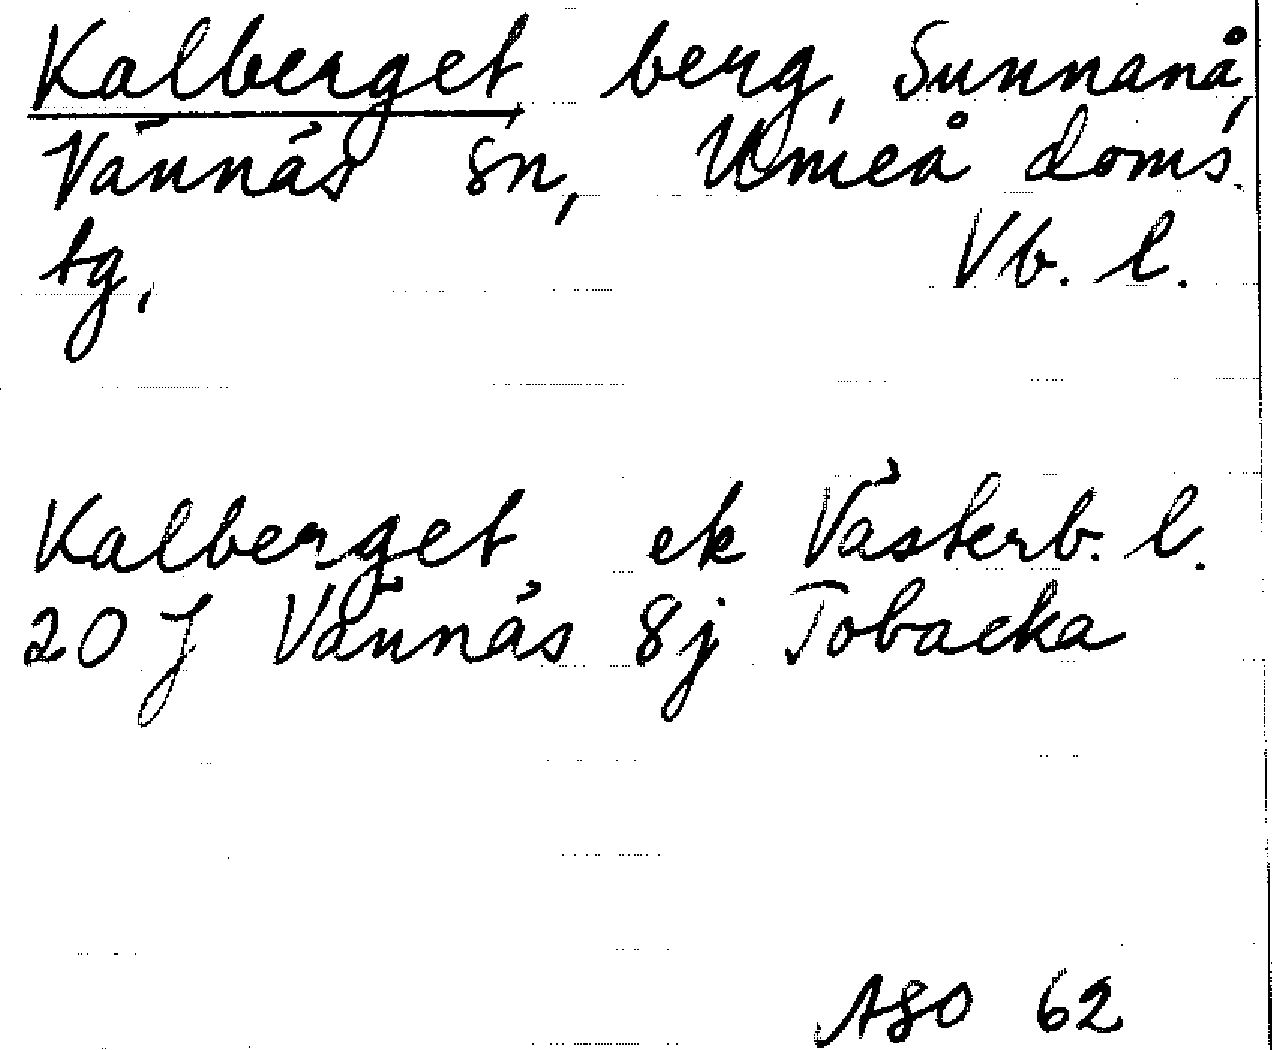 Kalberget berg, Sunnanå,
Vännäs sn, Umeå doms.
tg, Vb. l.
Kalberget ek Västerb. l.
20 J Vännäs 8j Tobacka
ASO 62